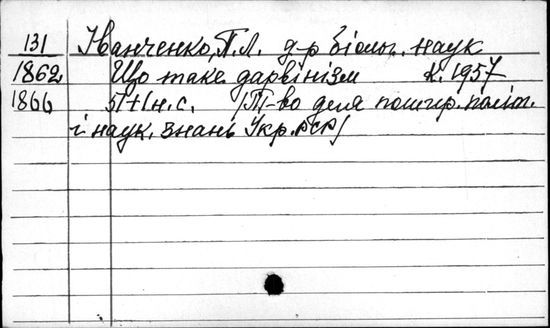 131 Іванченко, П.Л. д-р біолог. наук
1862 Що таке дарвінізм К. 1957
1866 51+1н.с. /Т-во для пошир. політ.
і наук. знань Укр. РСР/